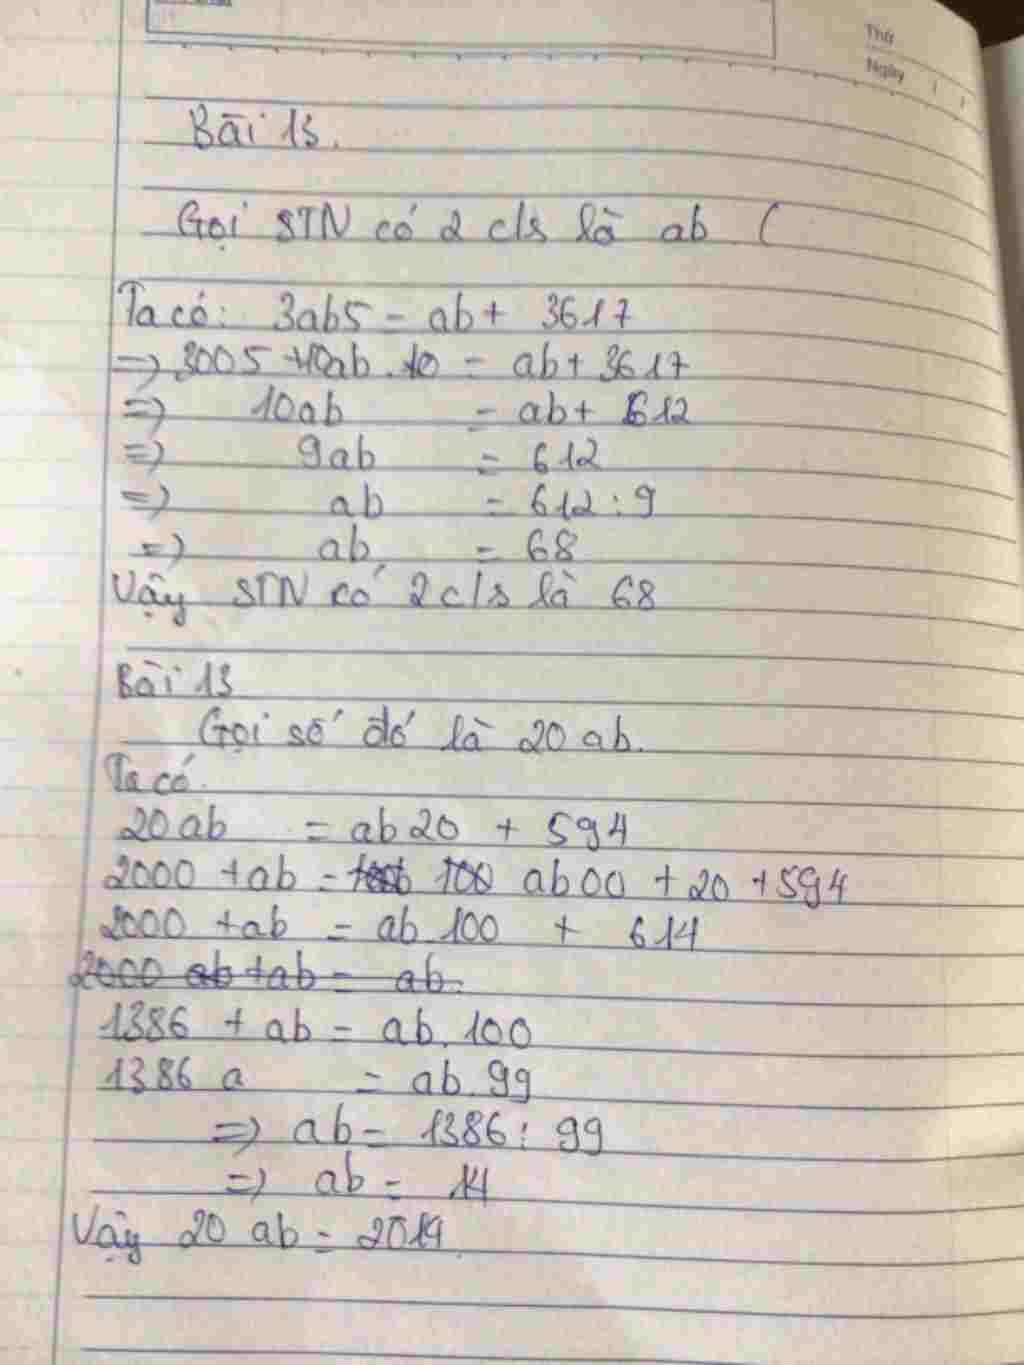 Thứ
Ngày
Bài 13.
Gọi STN có 2 c/s là ab (
Ta có: 3ab5 = ab + 3617
=> 3005 + ab.10 = ab + 3617
=> 10ab = ab + 612
=> 9ab = 612
=> ab = 612 : 9
=> ab = 68
Vậy STN có 2 c/s là 68
Bài 13
Gọi số đó là 20ab.
Ta có
20ab = ab20 + 594
2000 + ab = ab00 + 20 + 594
2000 + ab = ab.100 + 614
2000 ab + ab = ab.
1386 + ab = ab.100
1386 a = ab.99
=> ab = 1386 : 99
=> ab = 14
Vậy 20ab = 2014.